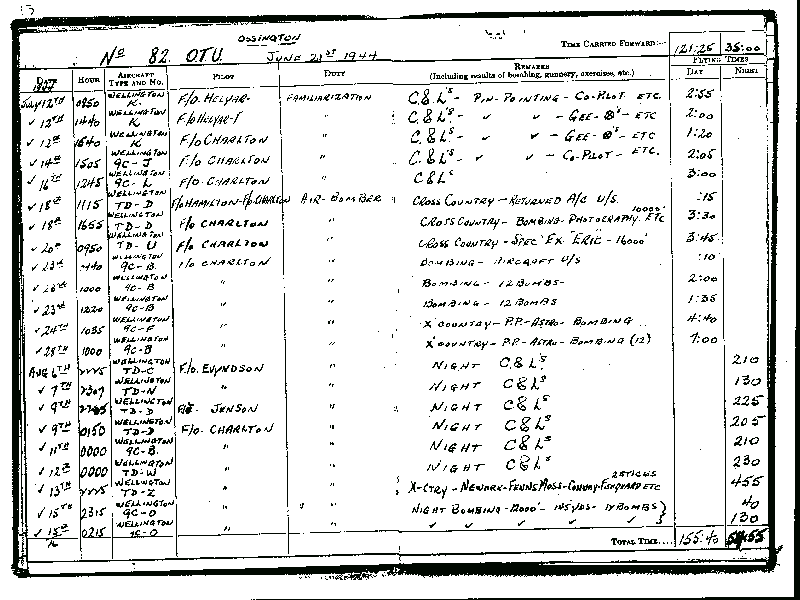 13
OSSINGTON
No 82. O.T.U. JUNE 21ST 1944 TIME CARRIED FORWARD:— 121:25 35:00
DATE HOUR AIRCRAFT TYPE AND NO. PILOT DUTY REMARKS (Including results of bombing, gunnery, exercises, etc.) FLYING TIMES DAY NIGHT
1944
JULY 12TH 0950 WELLINGTON K. F/O. HELYAR- FAMILIARIZATION C.&L'S - PIN-POINTING - CO-PILOT ETC. 2:55
✓ 12TH 1440 WELLINGTON K F/O HELYAR- " C.&L'S - ✓ ✓ - GEE- - ETC 2:00
✓ 12TH 1640 WELLINGTON K F/O CHARLTON " C.&L'S - ✓ ✓ - GEE- - ETC 1:20
✓ 14TH 1505 WELLINGTON 9C-J F/O CHARLTON " C.&L'S - ✓ ✓ - CO-PILOT - ETC. 2:05
✓ 16TH 1245 WELLINGTON 9C-L F/O CHARLTON " C&L'S 3:00
✓ 18TH 1115 WELLINGTON TD-D F/O HAMILTON-F/O CHARLTON AIR-BOMBER CROSS COUNTRY - RETURNED A/C U/S. :15
✓ 18TH 1655 WELLINGTON TD-D F/O CHARLTON " CROSS COUNTRY - BOMBING - PHOTOGRAPHY. ETC 10000' 3:30
✓ 20TH 0950 WELLINGTON TD-U F/O CHARLTON " CROSS COUNTRY - SPEC EX "ERIC - 16000' 3:45
✓ 23RD WELLINGTON 9C-B. F/O CHARLTON " BOMBING - AIRCRAFT U/S :10
✓ 1000 WELLINGTON 9C-B " " BOMBING - 12 BOMBS - 2:00
✓ 23RD 1220 WELLINGTON 9C-B " " BOMBING - 12 BOMBS 1:35
✓ 24TH 1035 WELLINGTON 9C-F " " X COUNTRY - P.P. - ASTRO - BOMBING 4:40
✓ 28TH 1000 WELLINGTON 9C-B " " X COUNTRY - P.P. - ASTRO - BOMBING (12)
AUG 6TH WELLINGTON TD-C F/O. " NIGHT C&L'S 210
✓ 7TH 2307 WELLINGTON TD-N " " NIGHT C&L'S 130
✓ 9TH WELLINGTON TD-D JENSON " NIGHT C&L'S 225
✓ 9TH 0150 WELLINGTON TD-D F/O. CHARLTON " NIGHT C&L'S 205
✓ 11TH 0000 WELLINGTON 9C-B. " " NIGHT C&L'S 210
✓ 12TH 0000 WELLINGTON TD-W " " NIGHT C&L'S 230
✓ 13TH WELLINGTON TD-Z " " X-CTRY - NEWARK - ETC 455
✓ 15TH 2315 WELLINGTON 9C-O " " NIGHT BOMBING - 12000' - 145 YDS - 17 BOMBS } 40
✓ 15TH 0215 WELLINGTON 9C-O " " ✓ ✓ ✓ ✓ ✓ } 130
16
TOTAL TIME.... 155:40 55